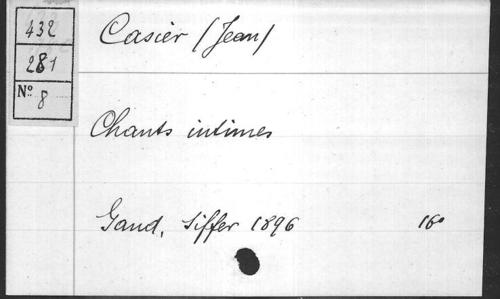 432
281
Nº 8
Casier (Jean)
Chants intimes
Gand, Siffer 1896 16º